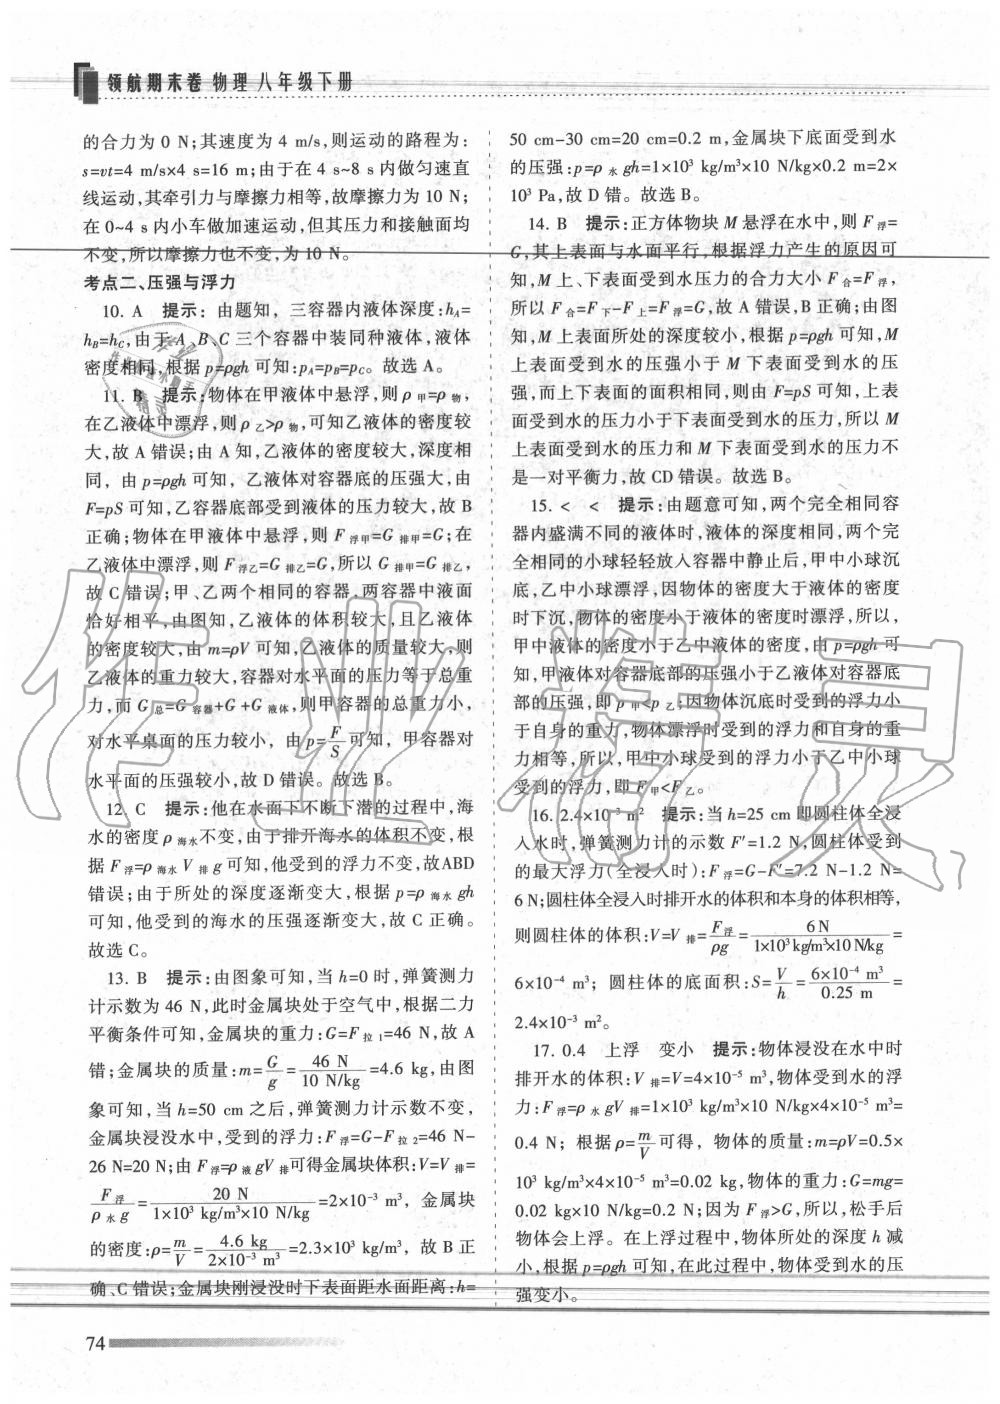 领航期末卷 物理 八年级下册
的合力为 0 N;其速度为 4 m/s,则运动的路程为:
s=vt=4 m/s×4 s=16 m;由于在 4 s~8 s 内做匀速直
线运动,其牵引力与摩擦力相等,故摩擦力为 10 N;
在 0~4 s 内小车做加速运动,但其压力和接触面均
不变,所以摩擦力也不变,为 10 N。
考点二、压强与浮力
10. A 提示: 由题知, 三容器内液体深度:hA=
hB=hC,由于 A、B、C 三个容器中装同种液体,液体
密度相同,根据 p=ρgh 可知:pA=pB=pC。故选 A。
11. B 提示:物体在甲液体中悬浮,则 ρ甲=ρ物,
在乙液体中漂浮,则 ρ乙>ρ物,可知乙液体的密度较
大,故 A 错误;由 A 知,乙液体的密度较大,深度相
同, 由 p=ρgh 可知, 乙液体对容器底的压强大,由
F=pS 可知,乙容器底部受到液体的压力较大,故 B
正确;物体在甲液体中悬浮,则 F浮甲=G排甲=G;在
乙液体中漂浮,则 F浮乙=G排乙=G,所以 G排甲=G排乙,
故 C 错误;甲、乙两个相同的容器,两容器中液面
恰好相平,由图知,乙液体的体积较大,且乙液体
的密度较大,由 m=ρV 可知,乙液体的质量较大,则
乙液体的重力较大,容器对水平面的压力等于总重
力,而 G总=G容器+G+G液体,则甲容器的总重力小,
对水平桌面的压力较小, 由 p=F/S 可知, 甲容器对
水平面的压强较小,故 D 错误。故选 B。
12. C 提示:他在水面下不断下潜的过程中,海
水的密度 ρ海水不变,由于排开海水的体积不变,根
据 F浮=ρ海水V排g 可知,他受到的浮力不变,故ABD
错误;由于所处的深度逐渐变大,根据 p=ρ海水gh
可知,他受到的海水的压强逐渐变大,故 C 正确。
故选 C。
13. B 提示:由图象可知,当 h=0 时,弹簧测力
计示数为 46 N,此时金属块处于空气中,根据二力
平衡条件可知,金属块的重力:G=F拉1=46 N,故 A
错;金属块的质量:m=G/g=46 N/10 N/kg=4.6 kg,由图
象可知,当 h=50 cm 之后,弹簧测力计示数不变,
金属块浸没水中,受到的浮力:F浮=G-F拉2=46 N-
26 N=20 N;由 F浮=ρ液gV排可得金属块体积:V=V排=
F浮/ρ水g=20 N/1×10³ kg/m³×10 N/kg=2×10⁻³ m³, 金属块
的密度:ρ=m/V=4.6 kg/2×10⁻³ m³=2.3×10³ kg/m³, 故 B 正
确、C 错误;金属块刚浸没时下表面距水面距离:h=
50 cm-30 cm=20 cm=0.2 m,金属块下底面受到水
的压强:p=ρ水gh=1×10³ kg/m³×10 N/kg×0.2 m=2×
10³ Pa,故 D 错。故选 B。
14. B 提示:正方体物块 M 悬浮在水中,则 F浮=
G,其上表面与水面平行,根据浮力产生的原因可
知,M 上、下表面受到水压力的合力大小 F合=F浮,
所以 F合=F下-F上=F浮=G,故 A 错误,B 正确;由图
知,M 上表面所处的深度较小,根据 p=ρgh 可知,M
上表面受到水的压强小于 M 下表面受到水的压
强,而上下表面的面积相同,则由 F=pS 可知,上表
面受到水的压力小于下表面受到水的压力,所以 M
上表面受到水的压力和 M 下表面受到水的压力不
是一对平衡力,故 CD 错误。故选 B。
15. < < 提示:由题意可知,两个完全相同容
器内盛满不同的液体时,液体的深度相同,两个完
全相同的小球轻轻放入容器中静止后,甲中小球沉
底,乙中小球漂浮,因物体的密度大于液体的密度
时下沉,物体的密度小于液体的密度时漂浮,所以,
甲中液体的密度小于乙中液体的密度,由 p=ρgh 可
知,甲液体对容器底部的压强小于乙液体对容器底
部的压强,即 p甲<p乙;因物体沉底时受到的浮力小
于自身的重力,物体漂浮时受到的浮力和自身的重
力相等,所以,甲中小球受到的浮力小于乙中小球
受到的浮力,即 F甲<F乙。
16. 2.4×10⁻³ m² 提示:当 h=25 cm 即圆柱体全浸
入水时,弹簧测力计的示数 F′=1.2 N,圆柱体受到
的最大浮力(全浸入时):F浮=G-F′=7.2 N-1.2 N=
6 N;圆柱体全浸入时排开水的体积和本身的体积相等,
则圆柱体的体积:V=V排=F浮/ρg=6 N/1×10³ kg/m³×10 N/kg=
6×10⁻⁴ m³; 圆柱体的底面积:S=V/h=6×10⁻⁴ m³/0.25 m=
2.4×10⁻³ m²。
17. 0.4 上浮 变小 提示:物体浸没在水中时
排开水的体积:V排=V=4×10⁻⁵ m³,物体受到水的浮
力:F浮=ρ水gV排=1×10³ kg/m³×10 N/kg×4×10⁻⁵ m³=
0.4 N; 根据 ρ=m/V 可得, 物体的质量:m=ρV=0.5×
10³ kg/m³×4×10⁻⁵ m³=0.02 kg,物体的重力:G=mg=
0.02 kg×10 N/kg=0.2 N;因为 F浮>G,所以,松手后
物体会上浮。在上浮过程中,物体所处的深度 h 减
小,根据 p=ρgh 可知,在此过程中,物体受到水的压
强变小。
74
作业精灵